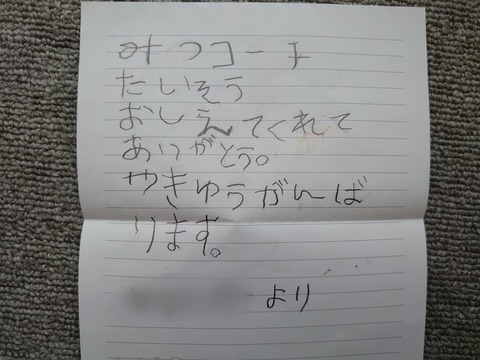 みつコーチ
たいそう
おしえてくれて
ありがとう。
やきゅうがんば
ります。
より